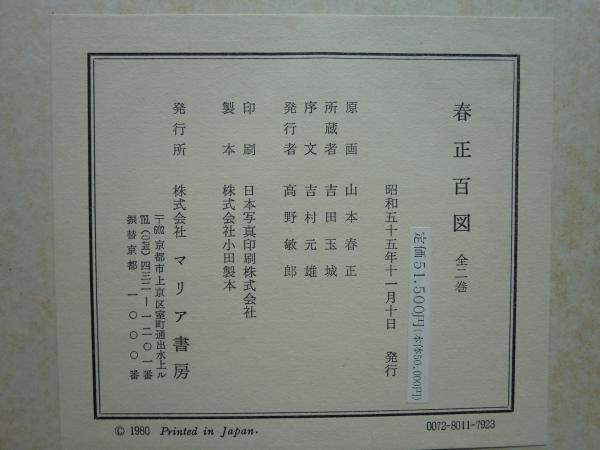 春正百図 全二巻
定価51,500円(本体50,000円)
昭和五十五年十一月十日 発行
原画 山本春正
所蔵者 吉田玉城
序文 吉村元雄
発行者 高野敏郎
印刷 日本写真印刷株式会社
製本 株式会社小田製本
発行所 株式会社 マリア書房
〒602 京都市上京区室町通出水上ル
℡(〇七五)四三二―一二〇一番
振替京都 一〇〇〇番
© 1980 Printed in Japan.
0072-8011-7923